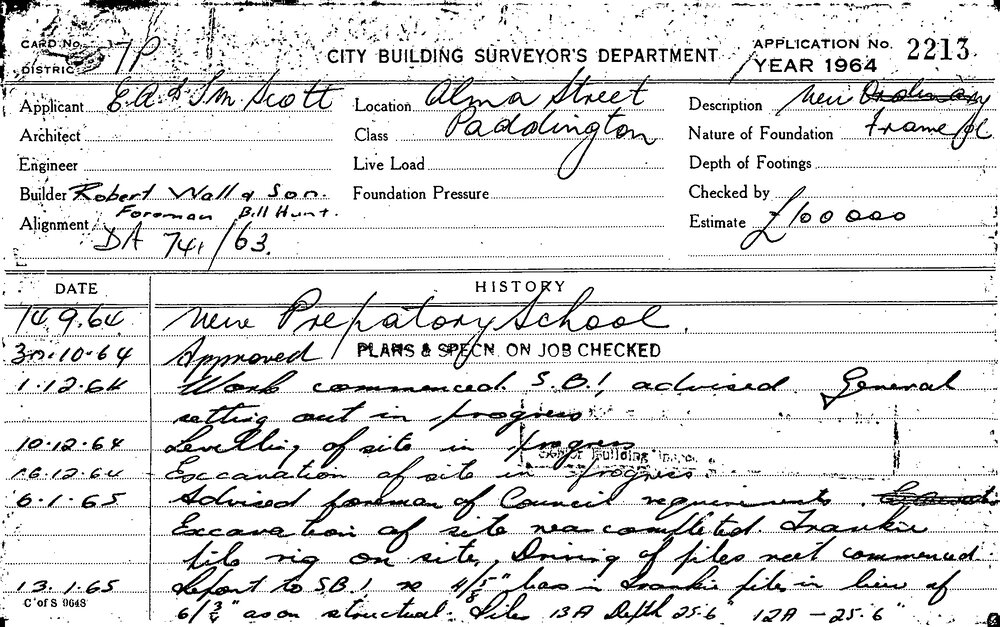 CARD No. 17P
DISTRICT
CITY BUILDING SURVEYOR'S DEPARTMENT
APPLICATION No. 2213
YEAR 1964
Applicant E.A & I.M Scott
Location Alma Street
Description New Ordinary
Architect
Class Paddington
Nature of Foundation Frame
Engineer
Live Load
Depth of Footings
Builder Robert Wall & Son.
Foundation Pressure
Checked by
Foreman Bill Hunt.
Alignment DA 741/63.
Estimate £100 000
DATE HISTORY
14.9.64 New Prepatory School.
30.10.64 Approved PLANS & SPECN. ON JOB CHECKED
1.12.64 Work commenced. S.B.I. advised. General
setting out in progress
10.12.64 Levelling of site in progress
Senior Building
16.12.64 Excavation of site in progress.
6.1.65 Advised foreman of Council requirements.
Excavation of site near completed. Frankie
pile rig on site, Driving of piles not commenced.
13.1.65 Report to S.B.I. re 4/5/8" bars in Frankie piles in lieu of
C of S 9648
6/3/4" as on structural. Piles 13A Depth 25.6" 12A - 25.6"